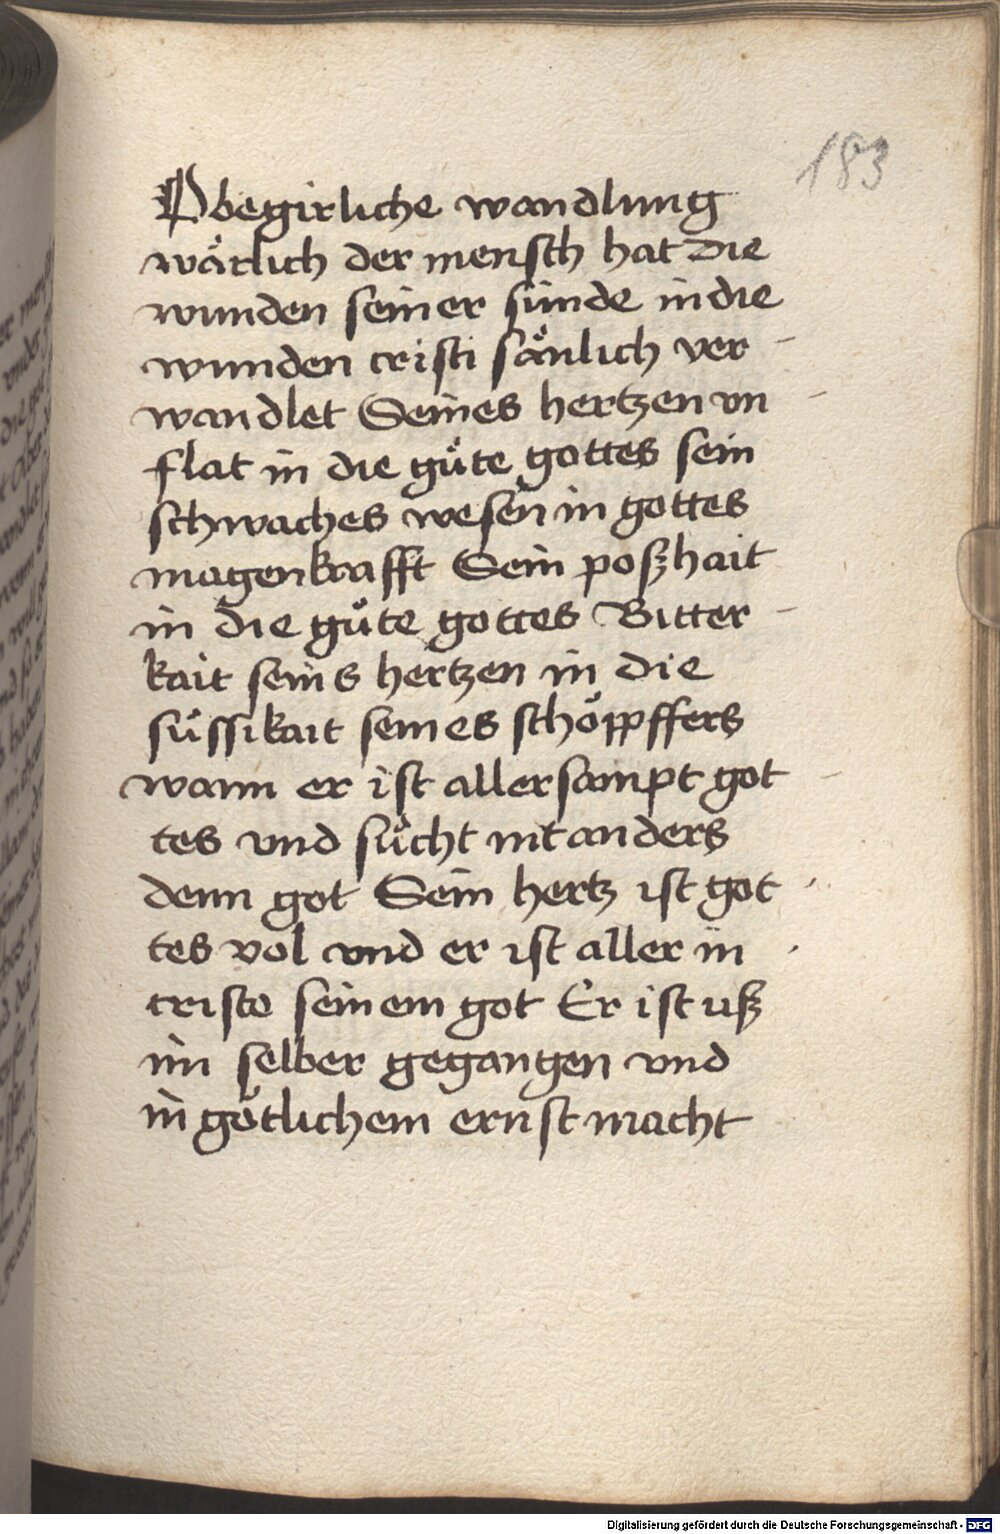 183
O begirliche wandlung
wärlich der mensch hat die
wunden seiner sünde in die
wunden cristi sänlich ver-
wandlet Seines hertzen vn-
flat in die güte gottes sein
schwaches wesen in gottes
magenkrafft Sein poßhait
in die güte gottes Bitter-
kait seins hertzen in die
süssikait seines schöppffers
wann er ist allersampt got-
tes vnd sücht nit anders
denn got Sein hertz ist got-
tes vol vnd er ist aller in
cristo seinem got Er ist uß
im selber gegangen vnd
in götlichem ernst macht
Digitalisierung gefördert durch die Deutsche Forschungsgemeinschaft - DFG